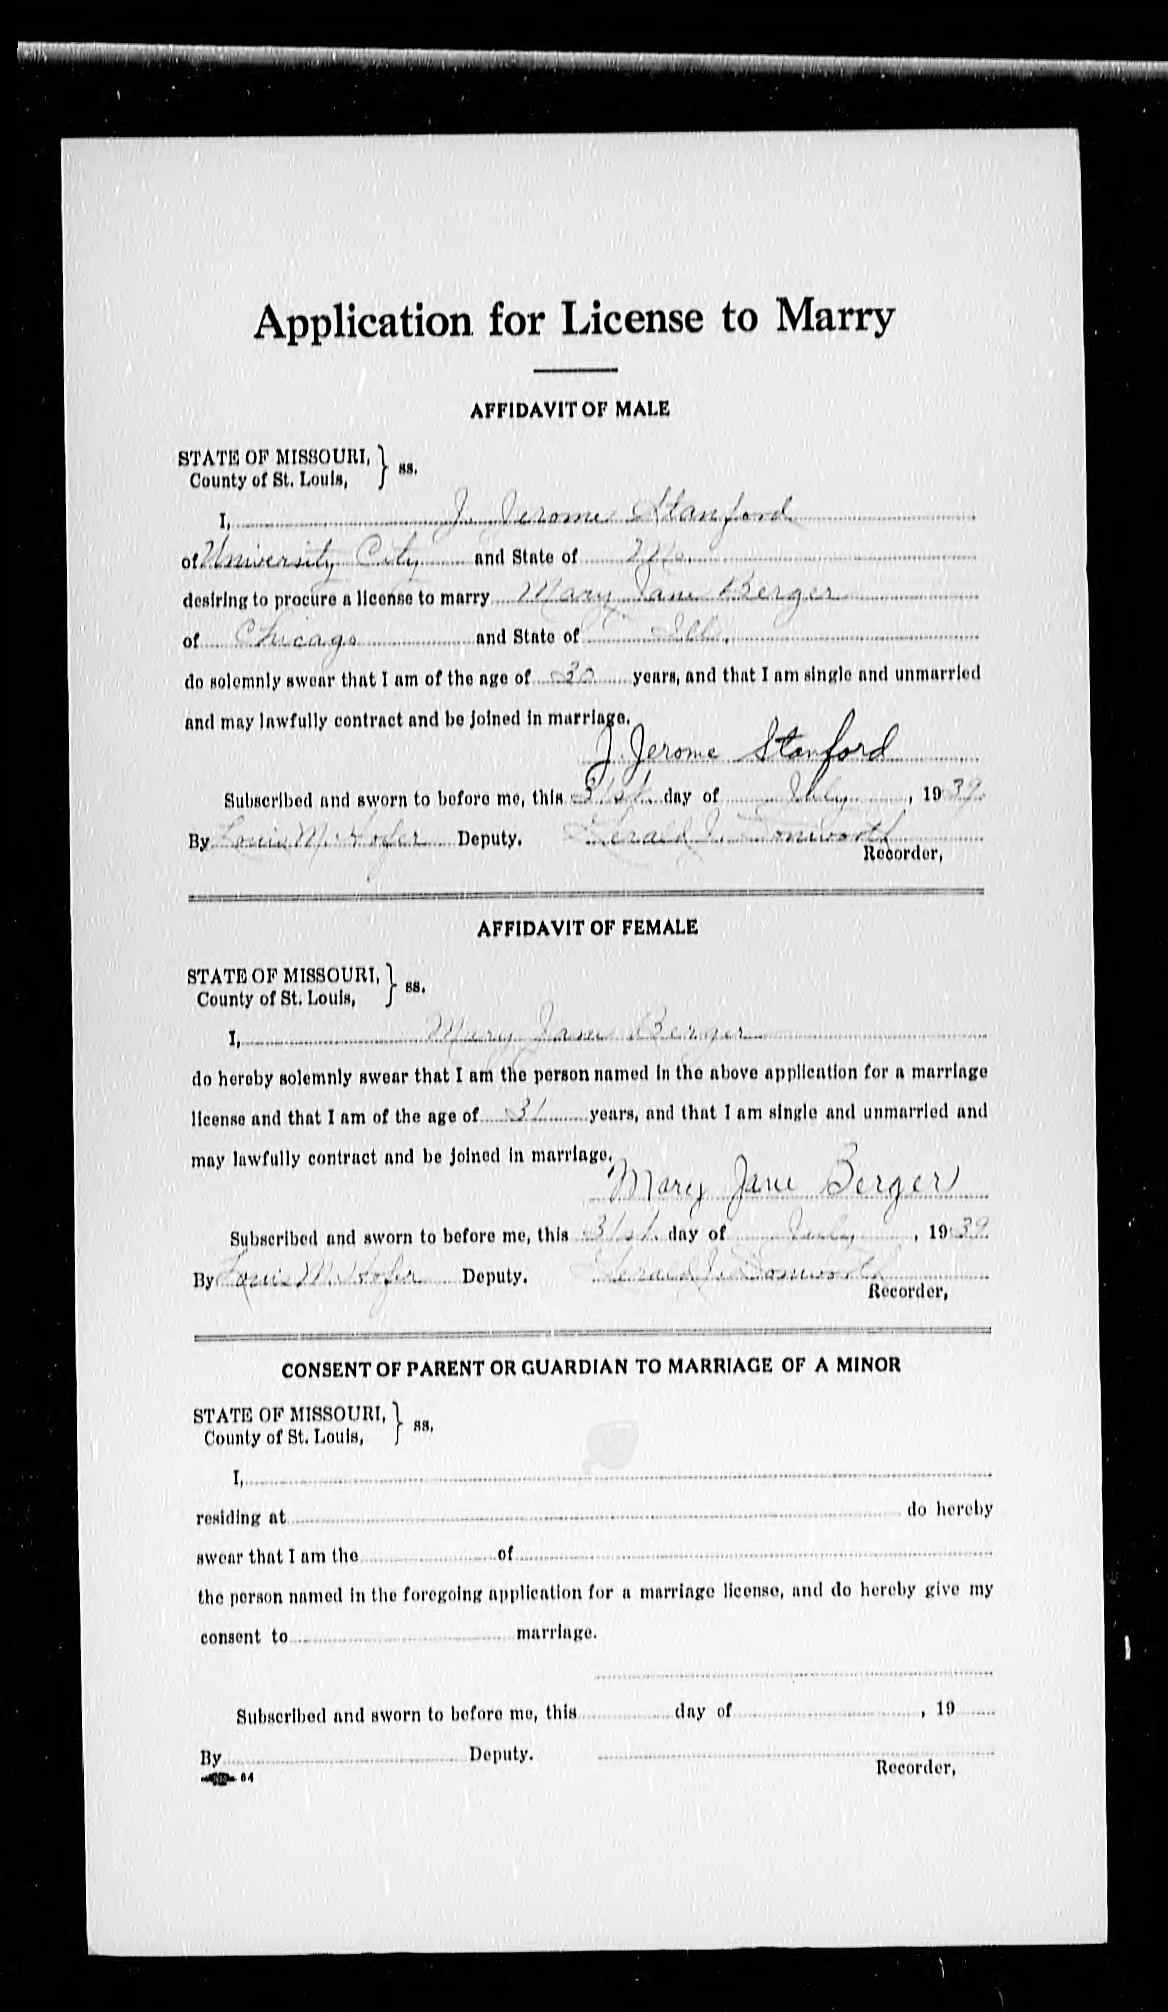 Application for License to Marry
AFFIDAVIT OF MALE
STATE OF MISSOURI, } ss.
County of St. Louis,
I, J. Jerome Stanford
of University City and State of Mo.
desiring to procure a license to marry Mary Jane Berger
of Chicago and State of Ill.,
do solemnly swear that I am of the age of years, and that I am single and unmarried
and may lawfully contract and be joined in marriage.
J. Jerome Stanford
Subscribed and sworn to before me, this 31st day of July, 1939.
By Louis M. Hofer Deputy. Gerald J. Donworth
Recorder,
AFFIDAVIT OF FEMALE
STATE OF MISSOURI, } ss.
County of St. Louis,
I, Mary Jane Berger
do hereby solemnly swear that I am the person named in the above application for a marriage
license and that I am of the age of 31 years, and that I am single and unmarried and
may lawfully contract and be joined in marriage.
Mary Jane Berger
Subscribed and sworn to before me, this 31st. day of July, 1939.
By Louis M. Hofer Deputy. Gerald J. Donworth
Recorder,
CONSENT OF PARENT OR GUARDIAN TO MARRIAGE OF A MINOR
STATE OF MISSOURI, } ss.
County of St. Louis,
I,
residing at do hereby
swear that I am the of
the person named in the foregoing application for a marriage license, and do hereby give my
consent to marriage.
Subscribed and sworn to before me, this day of , 19
By Deputy.
Recorder,
64